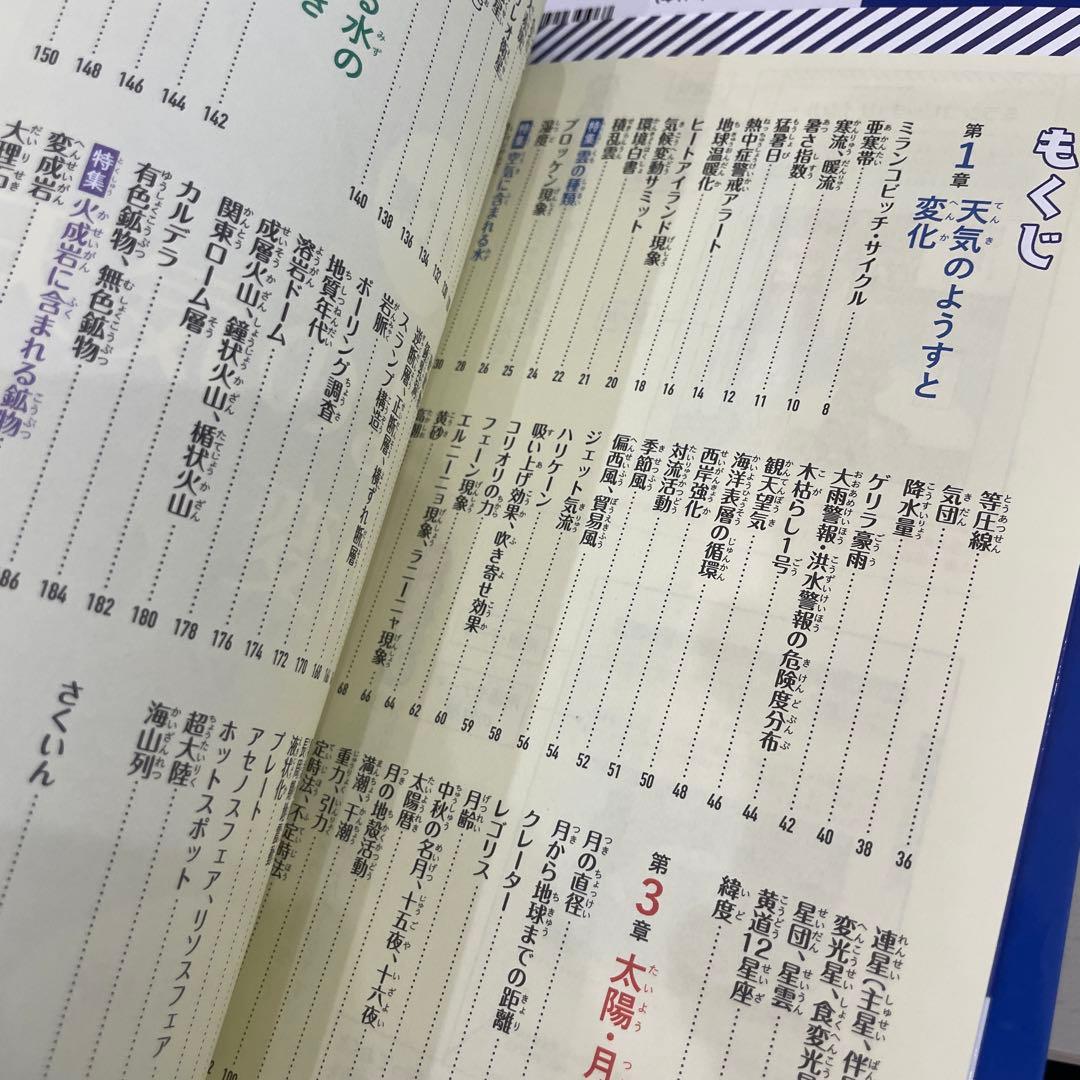 もくじ
第1章 天気のようすと
変化
ミランコビッチ・サイクル 8
亜寒帯
寒流、暖流 10
暑さ指数 11
猛暑日 12
熱中症警戒アラート 14
地球温暖化 16
ヒートアイランド現象 18
気候変動サミット 20
環境白書 21
積乱雲 22
特集 雲の種類 24
ブロッケン現象 25
湿度 26
特集 空気に含まれる水 28
30
等圧線 36
気団 38
降水量 40
ゲリラ豪雨 42
大雨警報・洪水警報の危険度分布 44
木枯らし1号 46
観天望気 48
海洋表層の循環 50
西岸強化 51
対流活動 52
季節風 54
偏西風、貿易風 56
ジェット気流 58
ハリケーン 59
吸い上げ効果、吹き寄せ効果 60
コリオリの力 62
フェーン現象 64
エルニーニョ現象、ラニーニャ現象 66
黄砂 68
連星（主星、伴
変光星、食変光星
星団、星雲
黄道12星座
緯度
第3章 太陽・月
月の直径
月から地球までの距離
クレーター
レゴリス
月齢
中秋の名月、十五夜、十六夜
太陽暦
月の地殻活動
満潮、干潮
重力、引力
定時法、不定時法
る水の
142
144
146
148
150
134
136
138
140
逆断層、正断層、横ずれ断層
スランプ構造
岩脈 170
ボーリング調査 172
地質年代 174
溶岩ドーム 176
成層火山、鐘状火山、楯状火山 178
関東ローム層 180
カルデラ 182
有色鉱物、無色鉱物 184
特集 火成岩に含まれる鉱物 186
変成岩
大理石
液状化
プレート
アセノスフェア、リソスフェア
ホットスポット
超大陸
海山列
さくいん